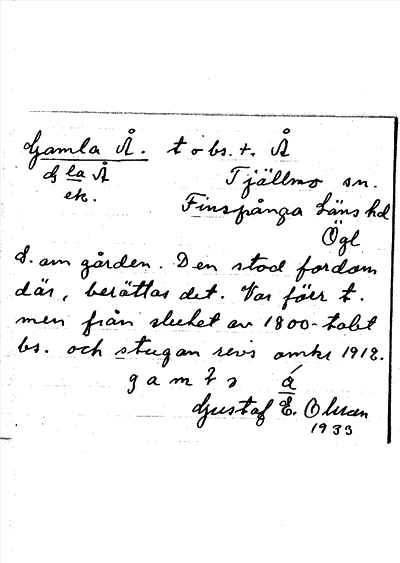 Gamla Å. t o bs. t. Å
G la Å Tjällmo sn.
ek. Finspånga läns hd
Ögl
S. om gården. Den stod fordom
där, berättas det. Var förr t.
men från slutet av 1800-talet
bs. och stugan revs omkr 1912.
gam
Gustaf E. Olsson
1933